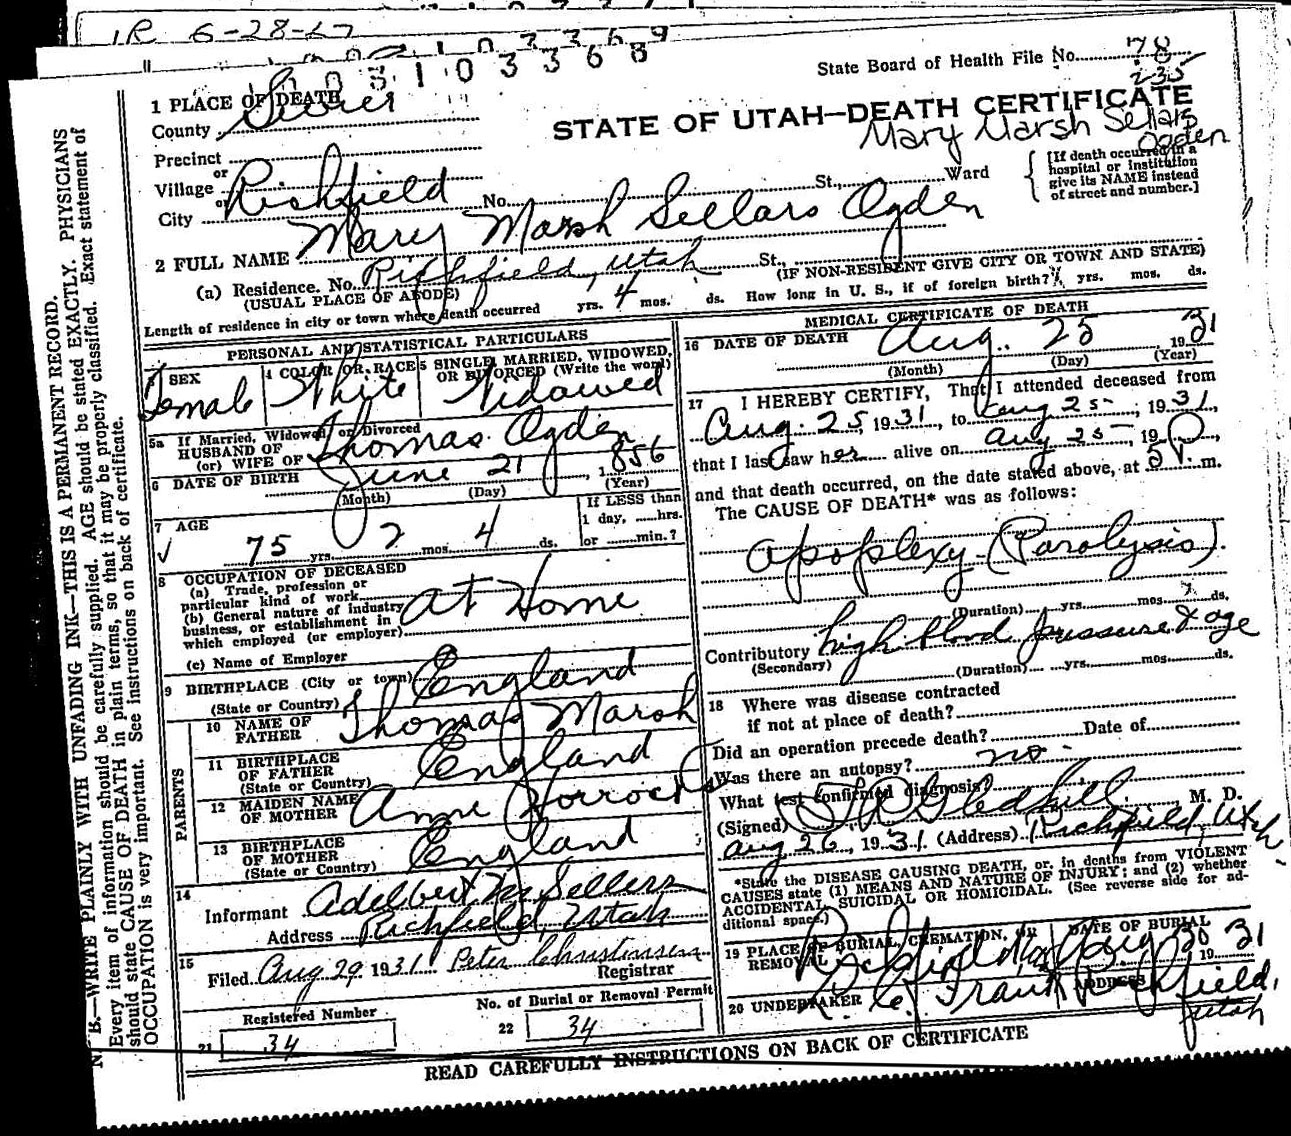 1R 6-28-67
0 0 3 1 0 3 3 6 9
0 0 3 1 0 3 3 6 8
State Board of Health File No. 78
235
1 PLACE OF DEATH
County Sevier
STATE OF UTAH—DEATH CERTIFICATE
Mary Marsh Sellars
Ogden
Precinct
or
Village
or
City Richfield No. St., Ward
[If death occurred in a
hospital or institution
give its NAME instead
of street and number.]
2 FULL NAME Mary Marsh Sellars Ogden
(a) Residence. No. Richfield, Utah St.,
(USUAL PLACE OF ABODE)
(IF NON-RESIDENT GIVE CITY OR TOWN AND STATE)
Length of residence in city or town where death occurred yrs. 4 mos. ds. How long in U. S., if of foreign birth? yrs. mos. ds.
PERSONAL AND STATISTICAL PARTICULARS
SEX Female
4 COLOR OR RACE White
5 SINGLE, MARRIED, WIDOWED,
OR DIVORCED (Write the word) Widowed
5a If Married, Widowed or Divorced
HUSBAND OF
(or) WIFE OF Thomas Ogden
6 DATE OF BIRTH June 21, 1856
(Month) (Day) (Year)
7 AGE
75 yrs. 2 mos. 4 ds.
If LESS than
1 day, hrs.
or min.?
8 OCCUPATION OF DECEASED
(a) Trade, profession or
particular kind of work
(b) General nature of industry
business, or establishment in
which employed (or employer) At Home
(c) Name of Employer
9 BIRTHPLACE (City or town)
(State or Country) England
PARENTS
10 NAME OF
FATHER Thomas Marsh
11 BIRTHPLACE
OF FATHER
(State or Country) England
12 MAIDEN NAME
OF MOTHER Anne Horrocks
13 BIRTHPLACE
OF MOTHER
(State or Country) England
14
Informant Adelbert M Sellers
Address Richfield, Utah
15
Filed Aug 29 1931 Peter Christensen
Registrar
Registered Number
21 34
No. of Burial or Removal Permit
22 34
MEDICAL CERTIFICATE OF DEATH
16 DATE OF DEATH Aug. 25 1931
(Month) (Day) (Year)
17 I HEREBY CERTIFY, That I attended deceased from
Aug. 25 1931, to Aug 25, 1931,
that I last saw her alive on Aug 25, 19
and that death occurred, on the date stated above, at 5 P. m.
The CAUSE OF DEATH* was as follows:
Apoplexy (Paralysis).
(Duration) yrs. mos. ds.
Contributory high blood pressure & age
(Secondary)
(Duration) yrs. mos. ds.
18 Where was disease contracted
if not at place of death?
Did an operation precede death? Date of
Was there an autopsy? no.
What test confirmed diagnosis?
(Signed) Gledhill M. D.
Aug 26, 1931. (Address) Richfield, Utah
*State the DISEASE CAUSING DEATH, or, in deaths from VIOLENT
CAUSES state (1) MEANS AND NATURE OF INJURY; and (2) whether
ACCIDENTAL, SUICIDAL OR HOMICIDAL. (See reverse side for ad-
ditional space.)
19 PLACE OF BURIAL, CREMATION, OR
REMOVAL Richfield
DATE OF BURIAL
Aug 30 1931
20 UNDERTAKER
ADDRESS
Richfield,
Utah
READ CAREFULLY INSTRUCTIONS ON BACK OF CERTIFICATE
N. B.—WRITE PLAINLY WITH UNFADING INK—THIS IS A PERMANENT RECORD.
Every item of information should be carefully supplied. AGE should be stated EXACTLY. PHYSICIANS
should state CAUSE OF DEATH in plain terms, so that it may be properly classified. Exact statement of
OCCUPATION is very important. See instructions on back of certificate.